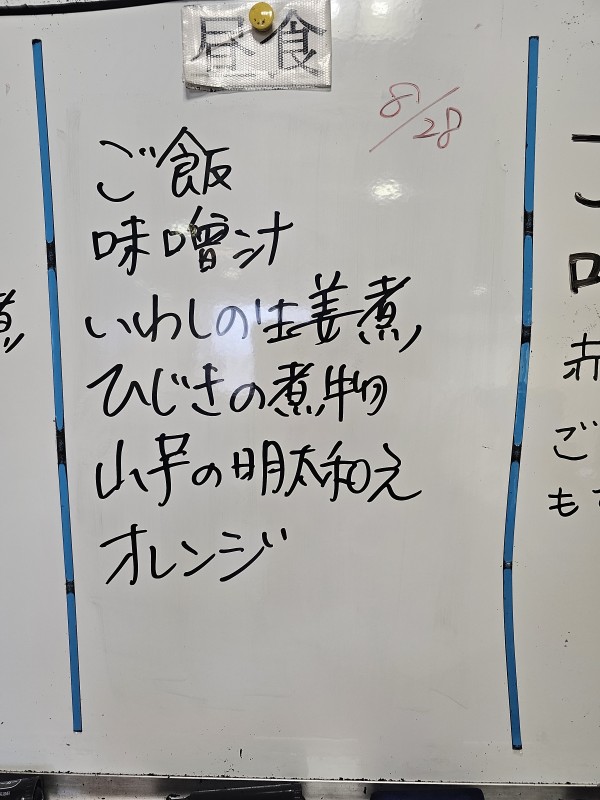 昼食
8/28
ご飯
味噌汁
いわしの生姜煮
ひじきの煮物
山芋の明太和え
オレンジ
煮
赤
ご
も